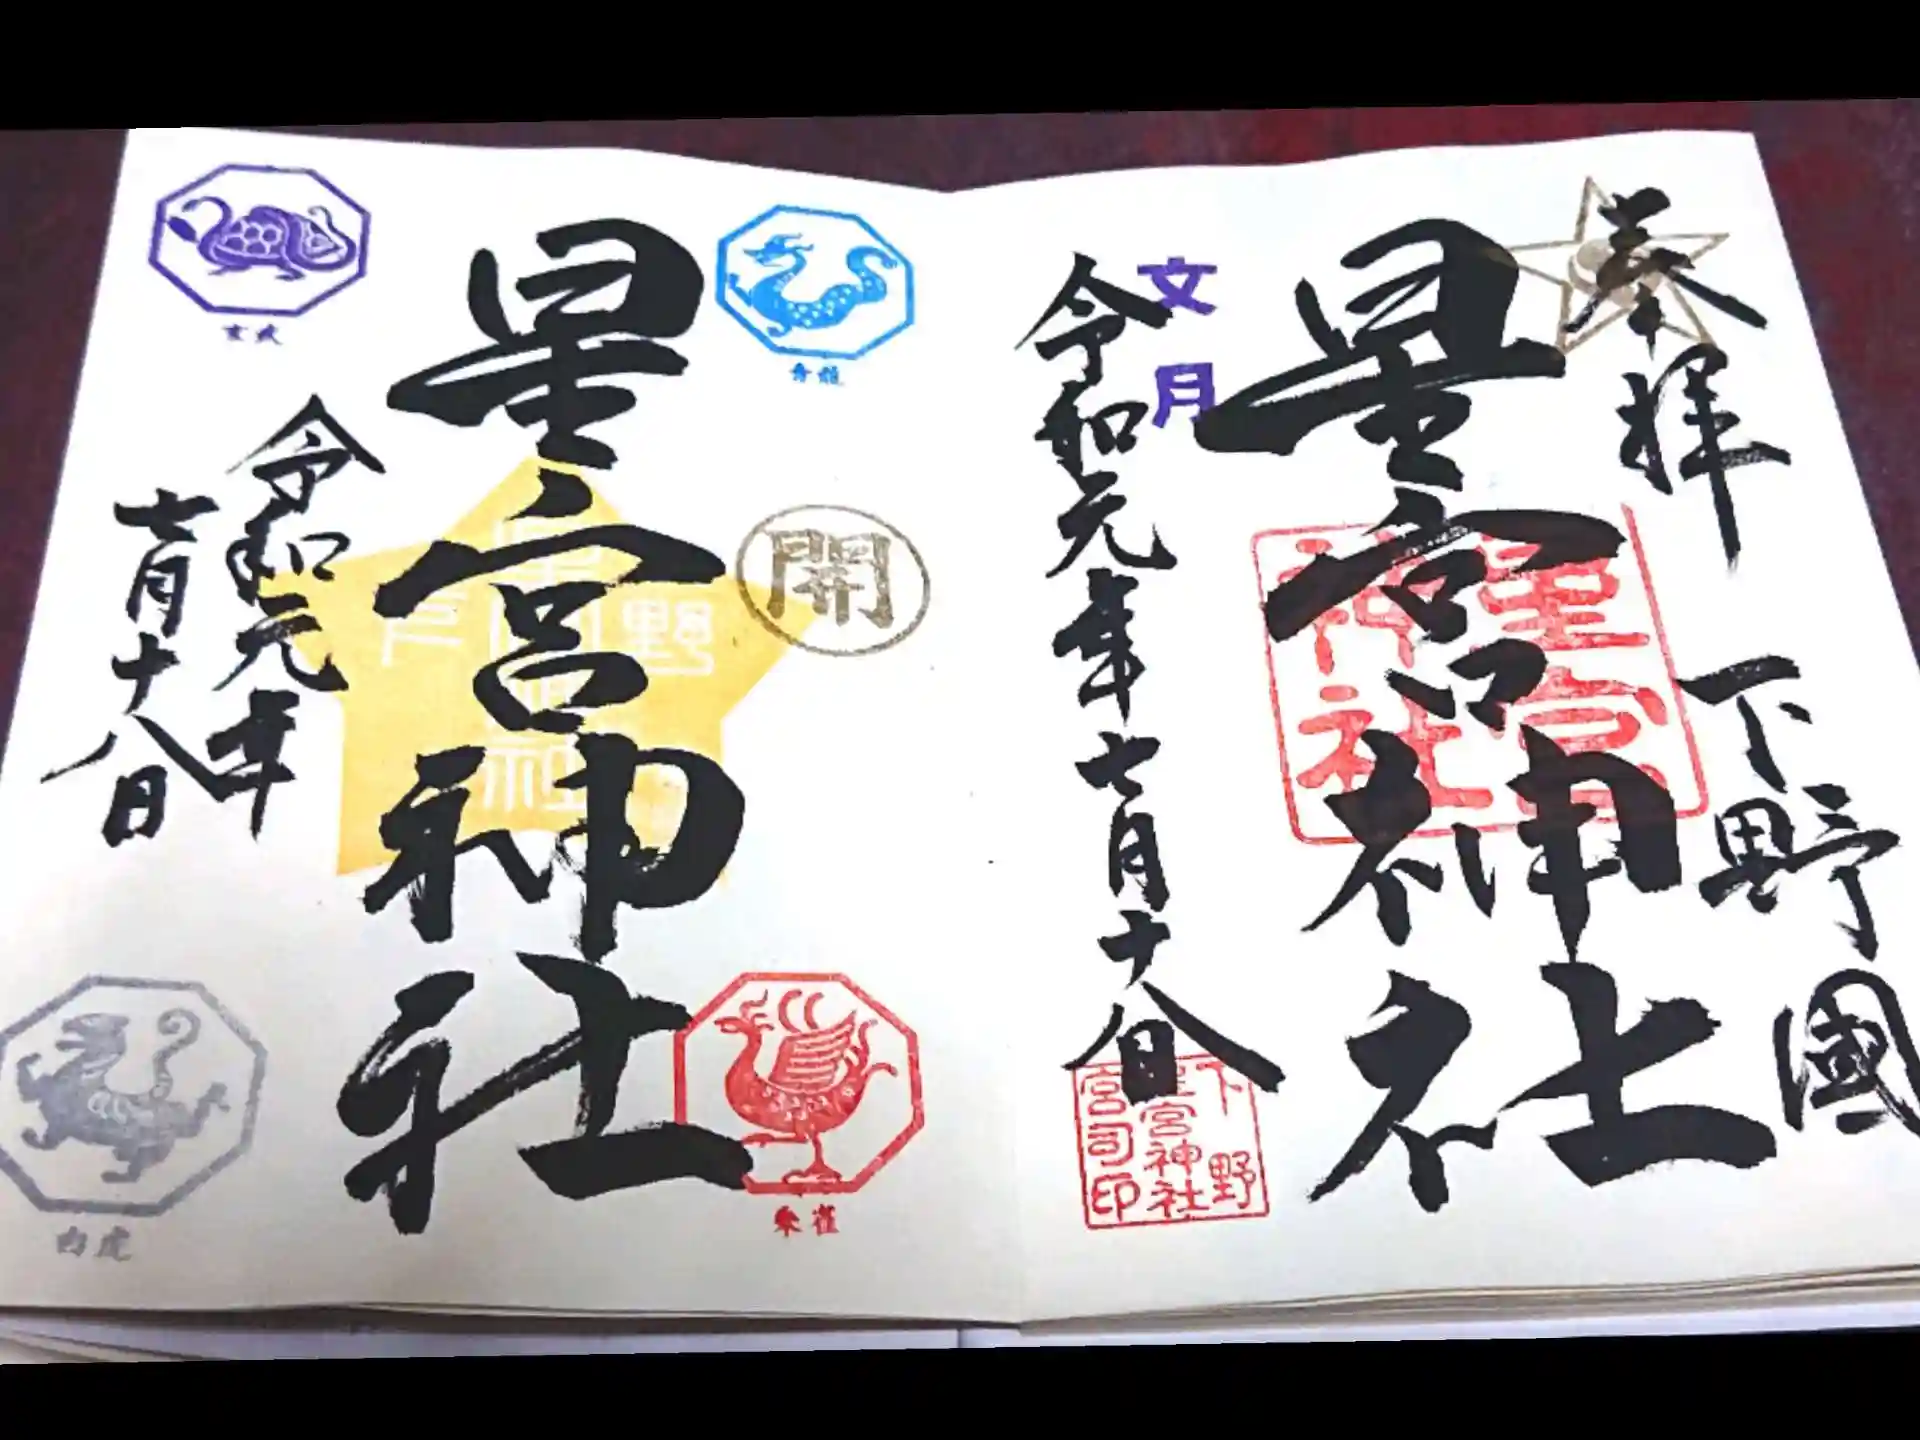 奉拝
下野國
星宮神社
星宮
神社
文月
令和元年七月十八日
下野
星宮神社
宮司印
青龍
開
朱雀
星宮神社
野
令和元年
七月十八日
玄武
白虎